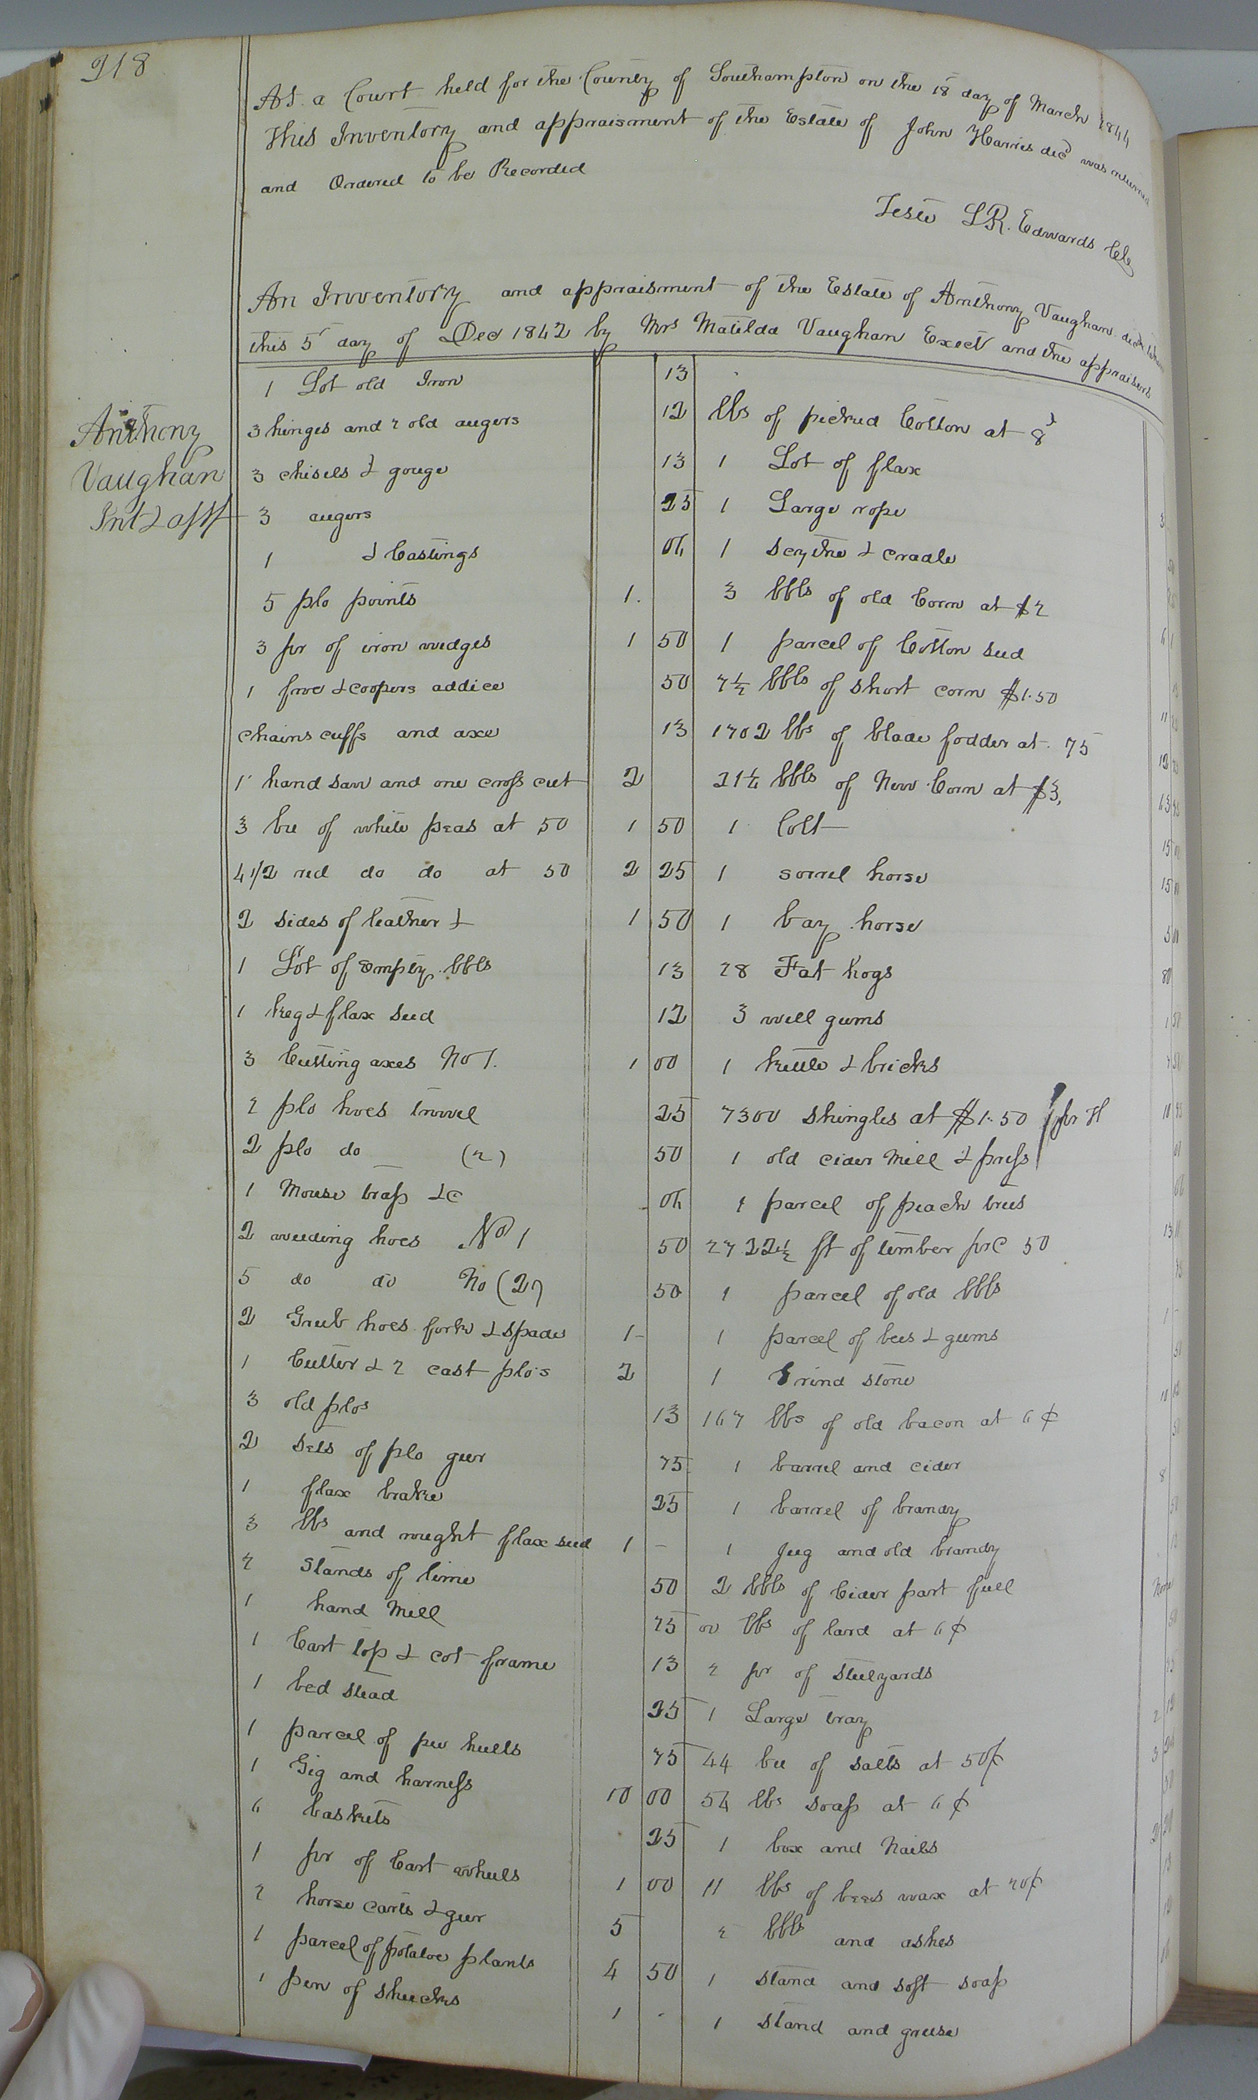 218
At a Court held for the County of Southampton on the 18 day of March 1844
This Inventory and appraisment of the Estate of John Harris decd was returned
and Ordered to be Recorded
Teste L.R. Edwards Clk
An Inventory and appraisment of the Estate of Anthony Vaughan decd
this 5 day of Dec 1842 by Mrs Matilda Vaughan Exect and the appraisers
Anthony
Vaughan
Int & appt
1 Lot old Iron 13
3 hinges and 2 old augers 12
3 chisels & gouge 13
3 augers 25
1 & Castings 06
5 plo points 1.
3 pr of iron wedges 1 50
1 froe & coopers addice 50
chains cuffs and axe 13
1 hand saw and one cross cut 2
3 bu of white peas at 50 1 50
4 1/2 red do do at 50 2 25
2 sides of leather & 1 50
1 Lot of empty bbls 13
1 keg & flax seed 12
3 Cutting axes No 1. 1 00
2 plo hoes trowel 25
2 plo do (2) 50
1 Mouse trap &c 06
2 weeding hoes No 1 50
5 do do No (2) 50
2 Grub hoes fork & spade 1 -
1 Cutter & 2 cast plo's 2
3 old plos 13
2 Sets of plo geer 75
1 flax brake 25
3 lbs and rought flax seed 1 -
2 Stands of lime 50
1 hand Mill 75
1 Cart top & cot frame 13
1 bed stead 25
1 parcel of pea hulls 75
1 Gig and harness 10 00
6 baskets 25
1 pr of Cart wheels 1 00
2 horse carts & geer 5
1 parcel of potatoe plants 4 50
1 pen of shucks 1 -
lbs of picked Cotton at 8
1 Lot of flax
1 Large rope
1 Scythe & cradle
3 bbls of old Corn at $2
1 parcel of Cotton seed
7 1/2 bbls of short corn $1.50
1702 lbs of blade fodder at 75
21 1/4 bbls of New Corn at $3,
1 Colt
1 sorrel horse
1 bay horse
28 Fat hogs
3 well gums
1 kettle & bricks
7300 shingles at $1.50 pr M
1 old cider Mill & press
1 parcel of peach trees
2722 1/2 ft of timber prC 50
1 parcel of old bbls
1 parcel of bees & gums
1 Grind stone
167 lbs of old bacon at 6¢
1 barrel and cider
1 barrel of brandy
1 Jug and old brandy
2 bbls of Cider part full
lbs of lard at 6¢
2 pr of Steelyards
1 Large tray
44 bu of salts at 50¢
54 lbs soap at 6¢
1 box and Nails
11 lbs of bees wax at 20¢
2 bbls and ashes
1 stand and soft soap
1 stand and grease